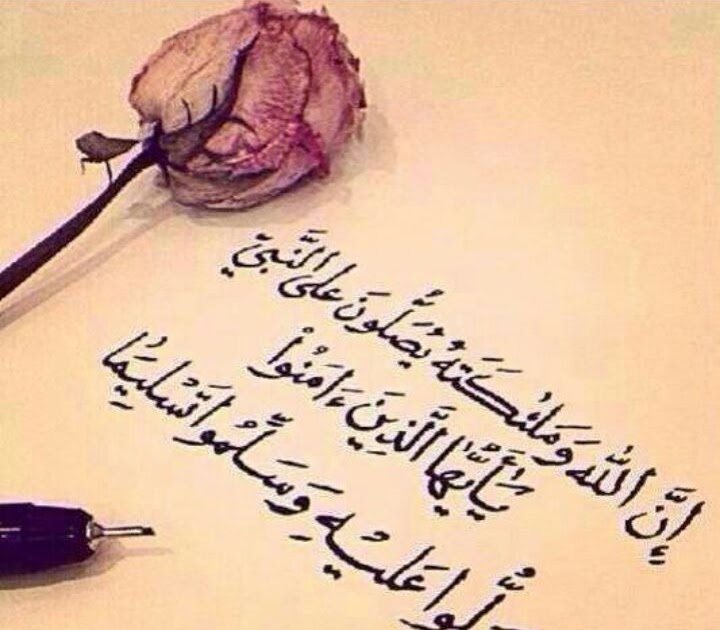 إِنَّ اللَّهَ وَمَلَٰئِكَتَهُ يُصَلُّونَ عَلَى النَّبِيِّ
يَٰأَيُّهَا الَّذِينَ ءَامَنُوا۟
صَلُّوا عَلَيْهِ وَسَلِّمُوا تَسْلِيمًا